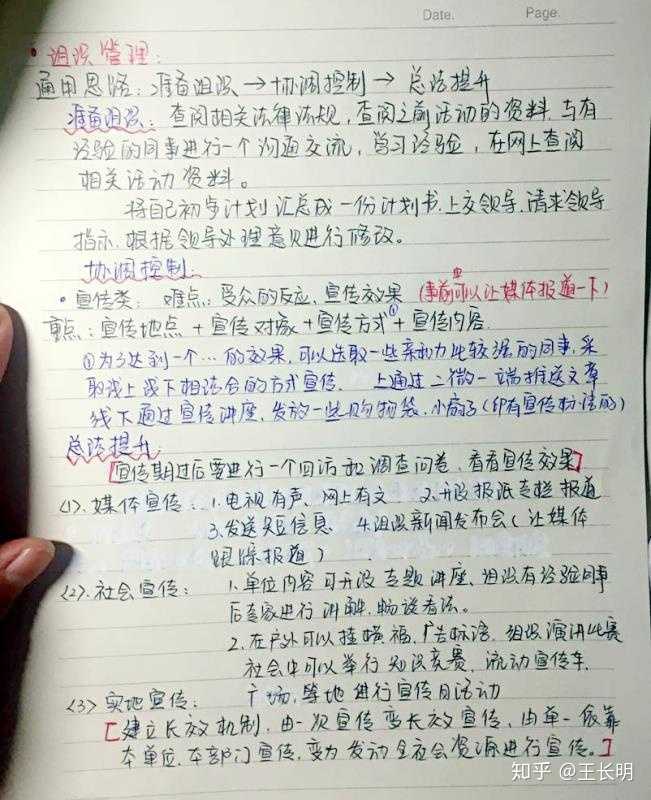 Date.          Page.
• 组织管理：
通用思路：准备组织 → 协调控制 → 总结提升
准备组织：查阅相关法律法规，查阅之前活动的资料，与有
经验的同事进行一个沟通交流，学习经验，在网上查阅
相关活动资料。
将自己初步计划汇总成一份计划书，上交领导，请求领导
指示，根据领导处理意见进行修改。
协调控制：
• 宣传类：难点：受众的反应、宣传效果（事前也可以让媒体报道一下）
重点：宣传地点 + 宣传对象 + 宣传方式① + 宣传内容
①为了达到一个…的效果，可以选取一些亲和力比较强的同事，采
取线上线下相结合的方式宣传。 上通过二微一端推送文章
线下通过宣传讲座、发放一些购物袋、小扇子（印有宣传标语的）
总结提升：
[宣传期过后要进行一个回访和调查问卷，看看宣传效果]
〈1〉、媒体宣传：1.电视有声、网上有文 2.开设报纸专栏报道
3.发送短信息 4.组织新闻发布会（让媒体
跟踪报道）
〈2〉、社会宣传：1.单位内容可开设专题讲座，组织有经验同事
后专家进行讲解，畅谈看法。
2.在户外可以挂横福，广告标语，组织演讲比赛
社会中可以举行知识竞赛，流动宣传车，
〈3〉实地宣传：广场，等地进行宣传月活动
[建立长效机制，由一次宣传变长效宣传，由单一依靠
本单位、本部门宣传，变为发动全社会资源进行宣传。]
知乎 @王长明